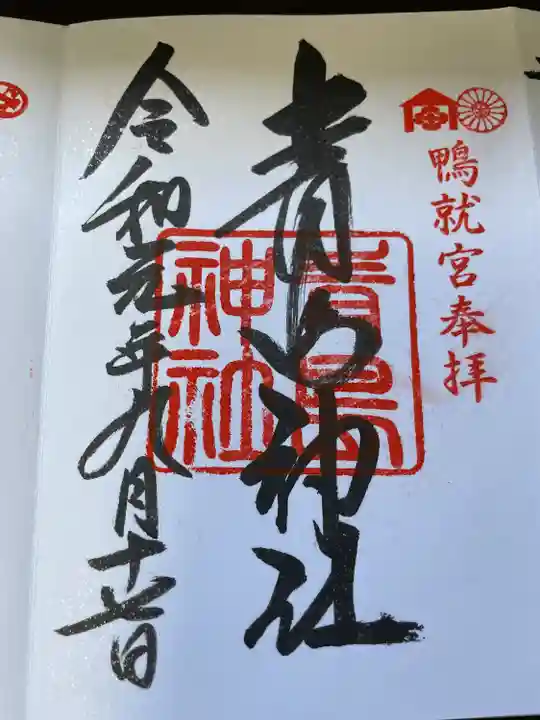 鴨就宮奉拝
青島神社
青島
神社
令和元年九月十七日